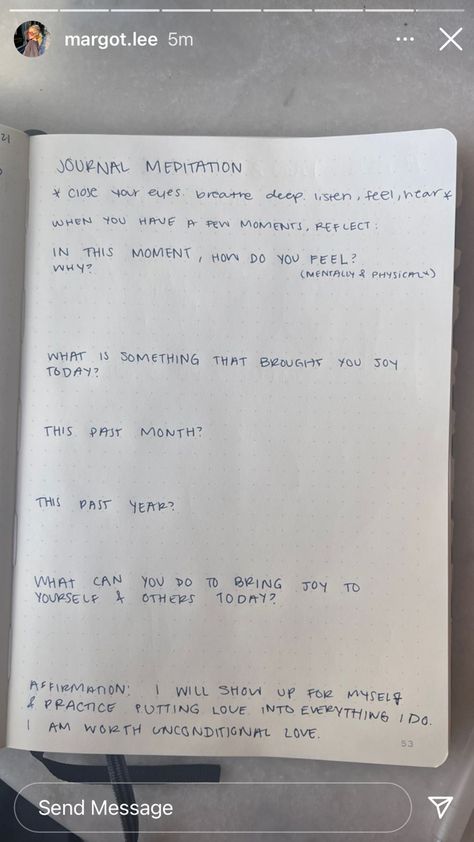 margot.lee 5m
21
JOURNAL MEDITATION
* close your eyes. breathe deep. listen, feel, hear *
WHEN YOU HAVE A FEW MOMENTS, REFLECT:
IN THIS MOMENT, HOW DO YOU FEEL?
WHY? (MENTALLY & PHYSICALLY)
WHAT IS SOMETHING THAT BROUGHT YOU JOY
TODAY?
THIS PAST MONTH?
THIS PAST YEAR?
WHAT CAN YOU DO TO BRING JOY TO
YOURSELF & OTHERS TODAY?
AFFIRMATION: I WILL SHOW UP FOR MYSELF
& PRACTICE PUTTING LOVE INTO EVERYTHING I DO.
I AM WORTH UNCONDITIONAL LOVE.
53
Send Message